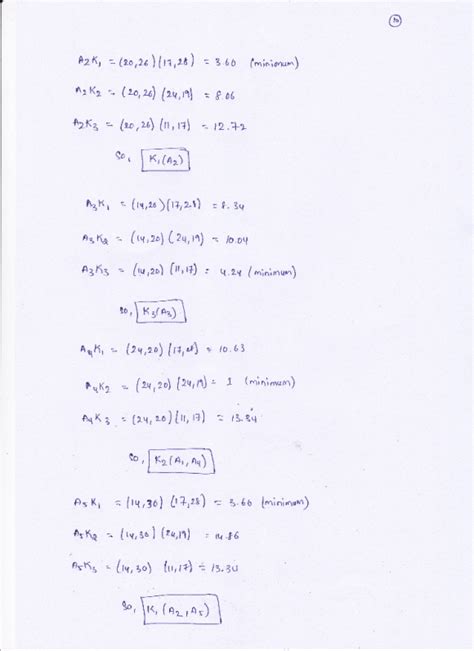 30
A2K1 = (20,26) (17,28) = 3.60 (minimum)
A2K2 = (20,26) (24,19) = 8.06
A2K3 = (20,26) (11,17) = 12.72
So, K1(A2)
A3K1 = (14,20) (17,28) = 8.34
A3K2 = (14,20) (24,19) = 10.04
A3K3 = (14,20) (11,17) = 4.24 (minimum)
So, K3(A3)
A4K1 = (24,20) (17,28) = 10.63
A4K2 = (24,20) (24,19) = 1 (minimum)
A4K3 = (24,20) (11,17) = 13.34
So, K2(A1, A4)
A5K1 = (14,30) (17,28) = 3.60 (minimum)
A5K2 = (14,30) (24,19) = 14.86
A5K3 = (14,30) (11,17) = 13.34
So, K1(A2, A5)